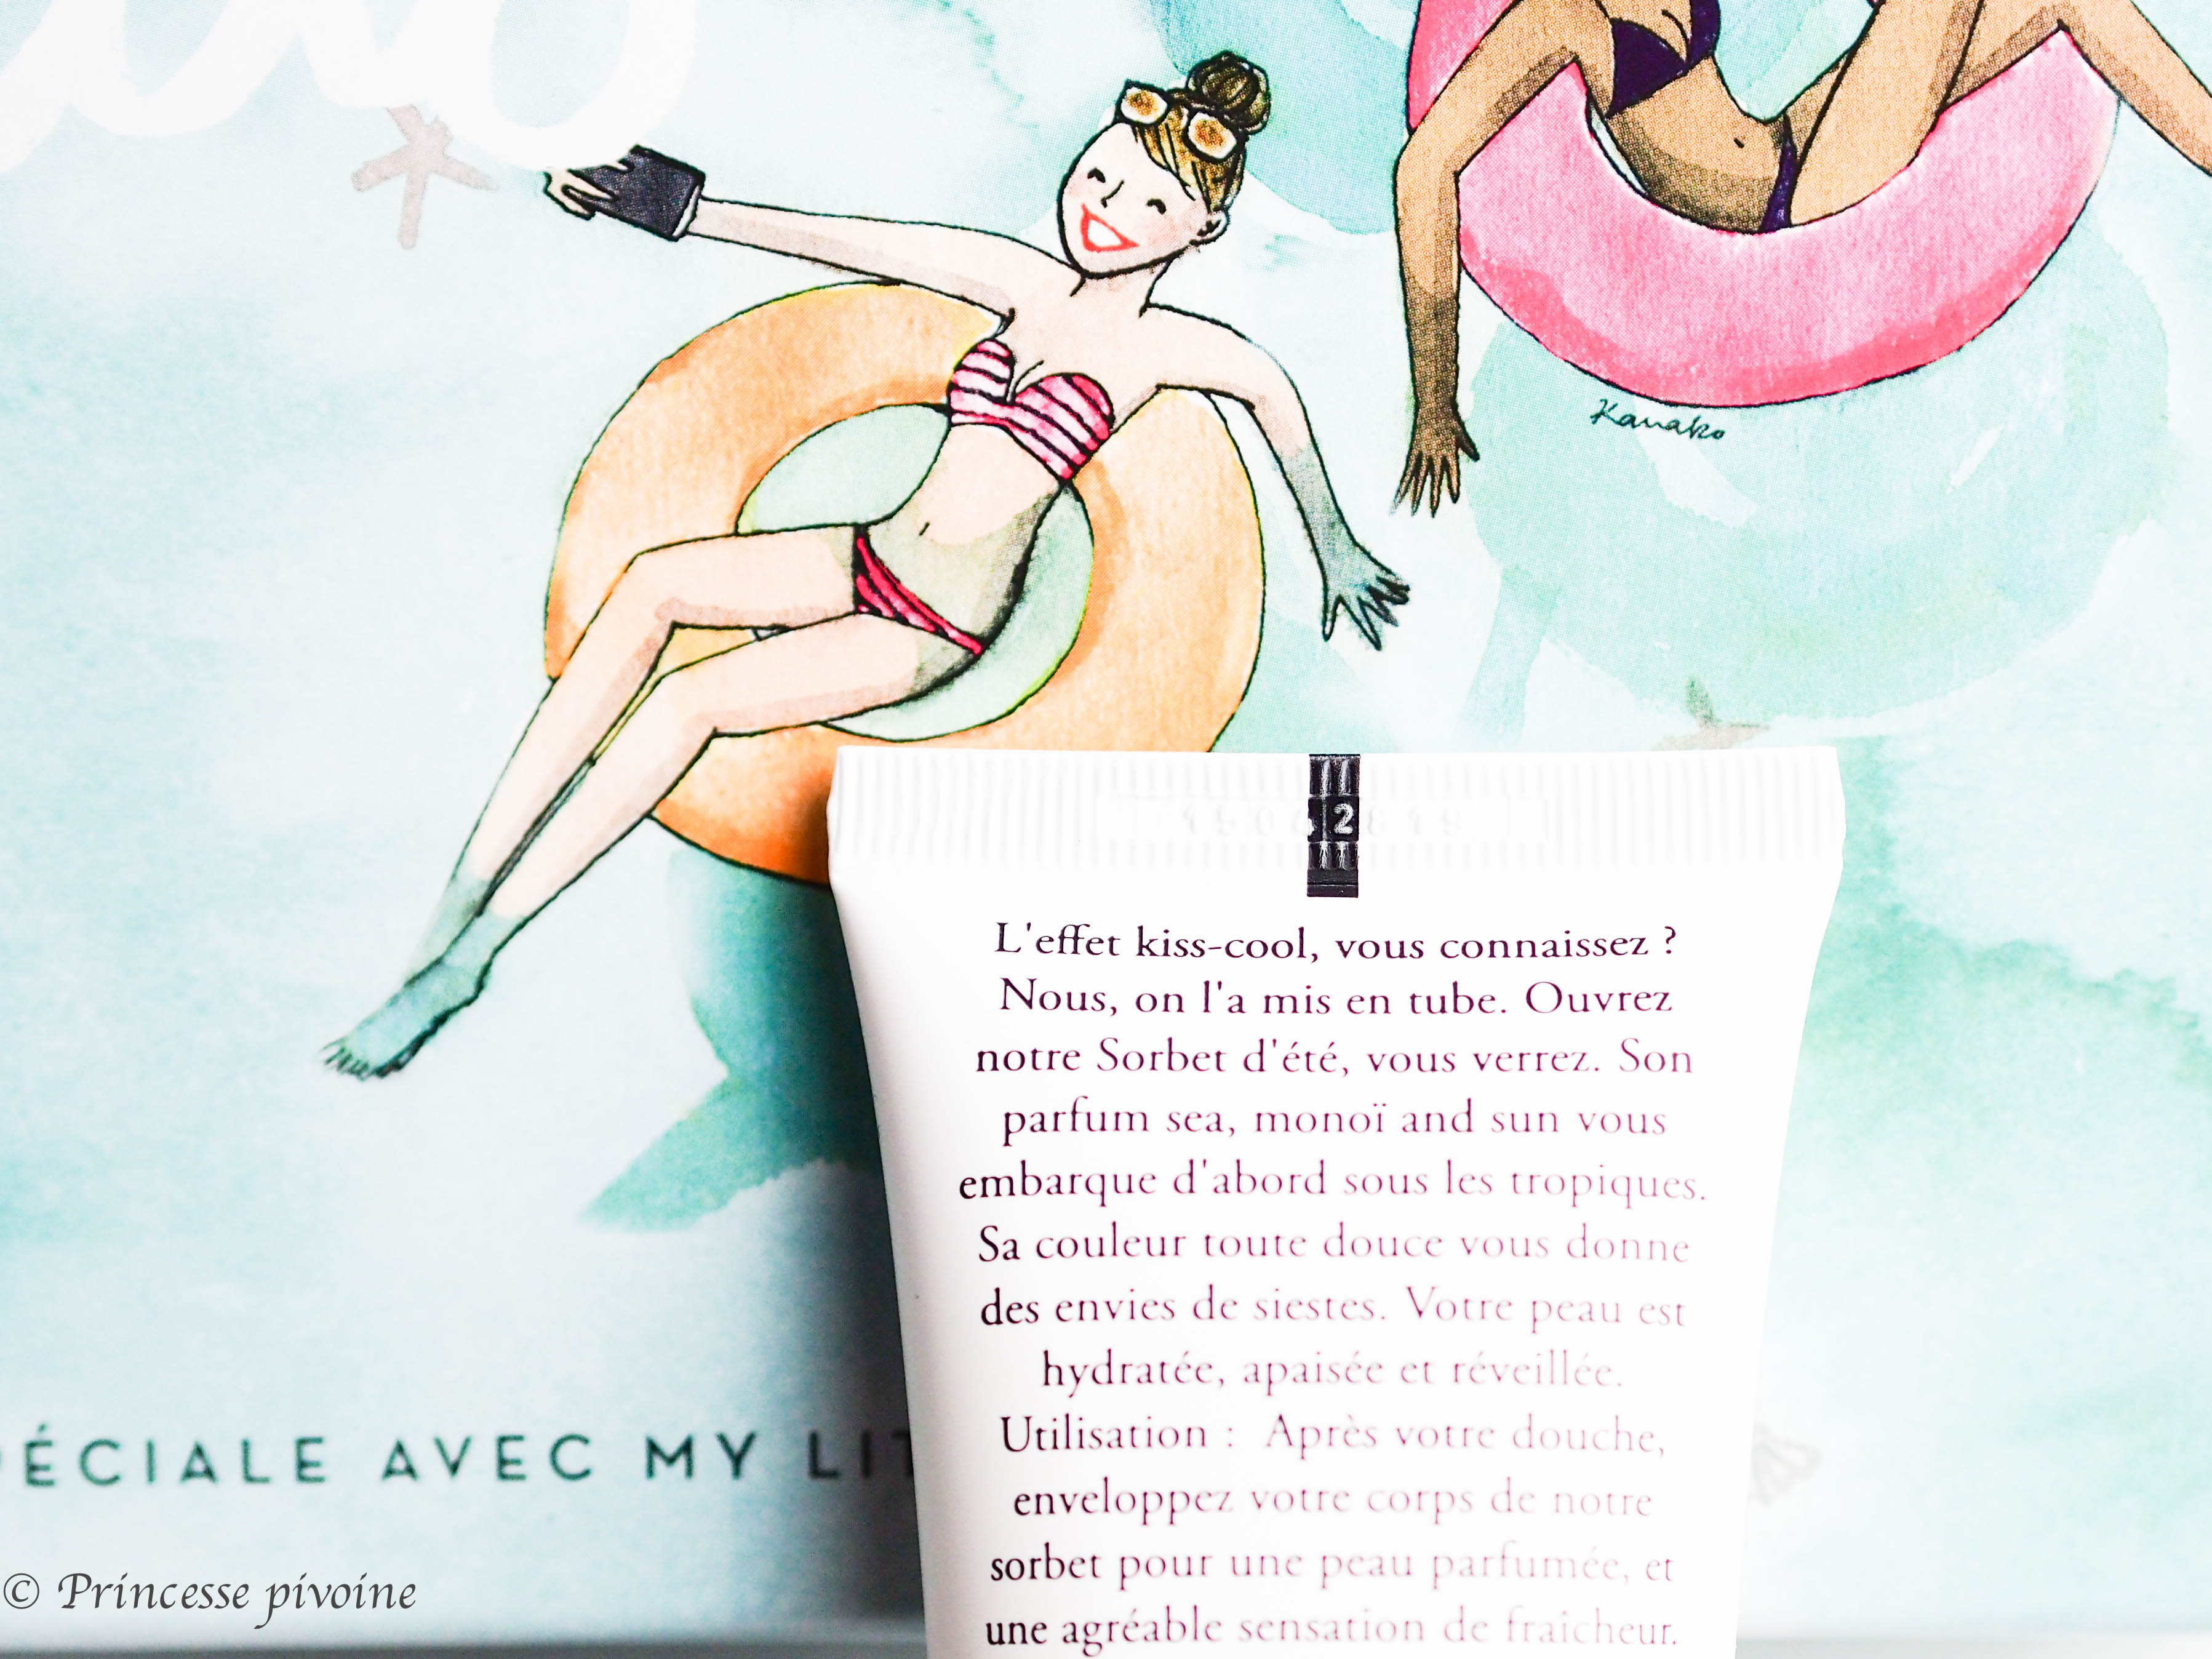 Kanako
2
L'effet kiss-cool, vous connaissez ?
Nous, on l'a mis en tube. Ouvrez
notre Sorbet d'été, vous verrez. Son
parfum sea, monoï and sun vous
embarque d'abord sous les tropiques.
Sa couleur toute douce vous donne
des envies de siestes. Votre peau est
hydratée, apaisée et réveillée.
Utilisation : Après votre douche,
enveloppez votre corps de notre
sorbet pour une peau parfumée, et
une agréable sensation de fraîcheur.
ÉCIALE AVEC MY LIT
© Princesse pivoine